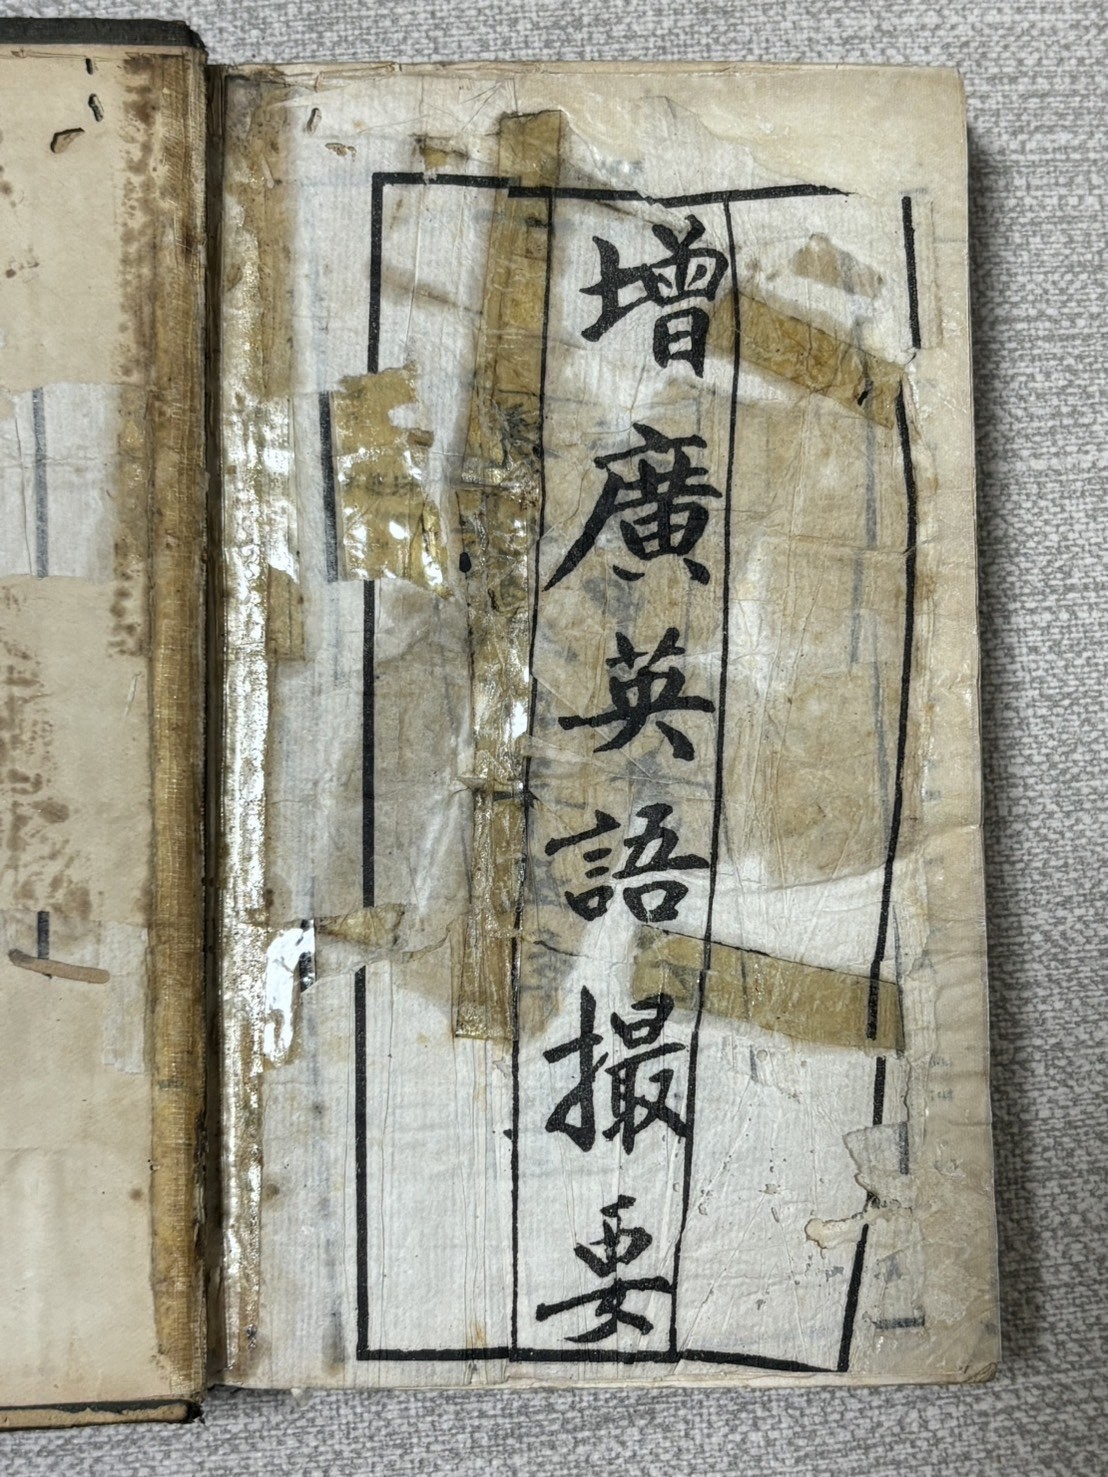 增廣英語撮要